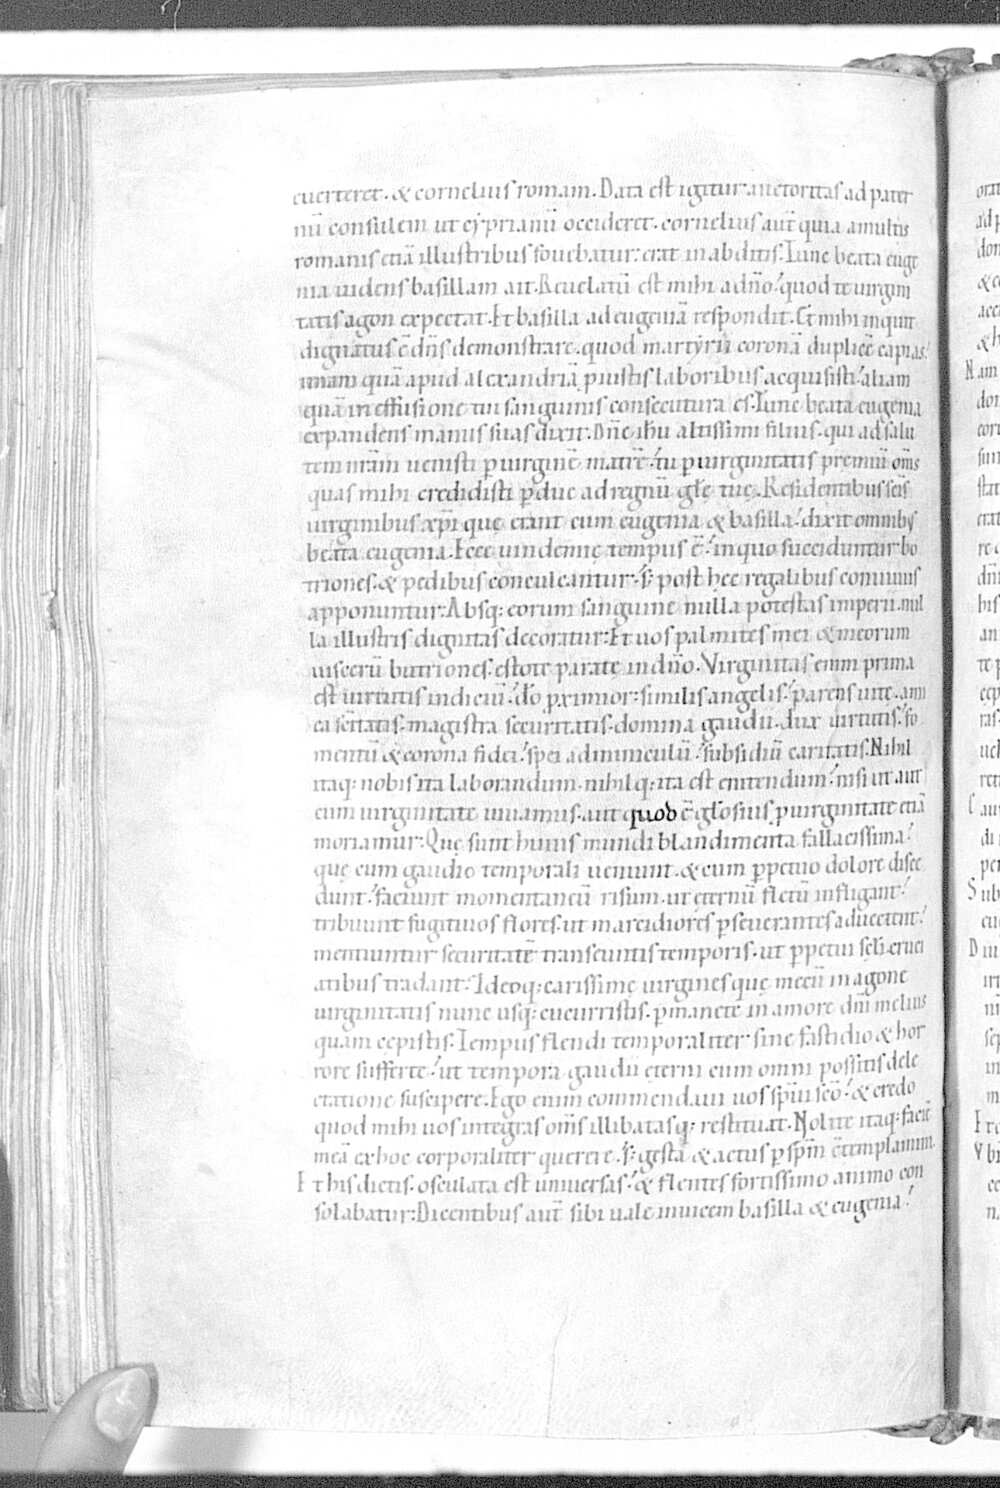 euerteret. & cornelius romam. Data est igitur auctoritas ad pater
nū consulem ut cyprianū occideret. cornelius aut̄ quia amultis
romanis etiā illustribus fouebatur: erat in abditis. Tunc beata euge
nia uidens basillam ait. Reuelatū est mihi adn̄o: quod te uirgini
tatis agon expectat. Et basilla ad eugeniā respondit. Et mihi inquit
dignatus ē dn̄s demonstrare. quod martyrii coronā duplicē capias:
unam quā apud alexandriā piustis laboribus acquisisti: aliam
quā in effusione tui sanguinis consecutura es. Tunc beata eugenia
expandens manus suas dixit. Dn̄e ih̄u altissimi filius. qui ad salu
tem nr̄am uenisti p uirginē matrē: tu p uirginitatis premiū om̄s
quas mihi credidisti pduc ad regnū gl̄ę tuę. Residentibus sc̄is
virginibus xp̄i quę erant cum eugenia & basilla: dixit omnib;
beata eugenia. Ecce uindemię tempus ē: in quo succiduntur bo
triones. & pedibus conculcantur: s; post hęc regalibus conuiuiis
apponuntur. Absq; eorum sanguine nulla potestas imperii. nul
la illustris dignitas decoratur: Et uos palmites mei & meorum
uiscerū butriones. estote parate in dn̄o. Virginitas enim prima
est uirtutis indiciū: do proximior: similis angelis: parens uite. ami
ca sc̄itatis. magistra securitatis. domina gaudii. dux uirtutis: fo
mentū & corona fidei: spei adminiculū: subsidiū caritatis. Nihil
itaq; nobis ita laborandum. nihilq; ita est enitendum: nisi ut aut
cum uirginitate uiuamus. aut quod ē gl̄osius, p uirginitate etiā
moriamur. Quę sunt huius mundi blandimenta fallacissima:
quę cum gaudio temporali ueniunt. & cum ppetuo dolore disce
dunt: faciunt momentaneū risum. ut eternū fletū infligant:
tribuunt fugitiuos flores. ut marcidiores pseuerantes aducerent:
mentiuntur securitatē transeuntis temporis. ut ppetui sc̄li cruci
atibus tradant: Ideoq; carissimę uirgines quę mecū in agone
uirginitatis nunc usq; cucurristis. pmanete in amore dn̄i melius
quam cepistis. Tempus flendi temporaliter sine fastidio & hor
rore sufferte: ut tempora gaudii eterni cum omni possitis dele
ctatione suscipere. Ego enim commendaui uos sp̄ui sc̄o: & credo
quod mihi uos integras om̄s illibatasq; restituat. Nolite itaq; faciē
meā ex hoc corporaliter querere. s; gesta & actus p spm̄ c̄templamini.
Et his dictis. osculata est uniuersas: & flentes fortissimo animo con
solabatur: Dicentibus aut̄ sibi uale inuicem basilla & eugenia: